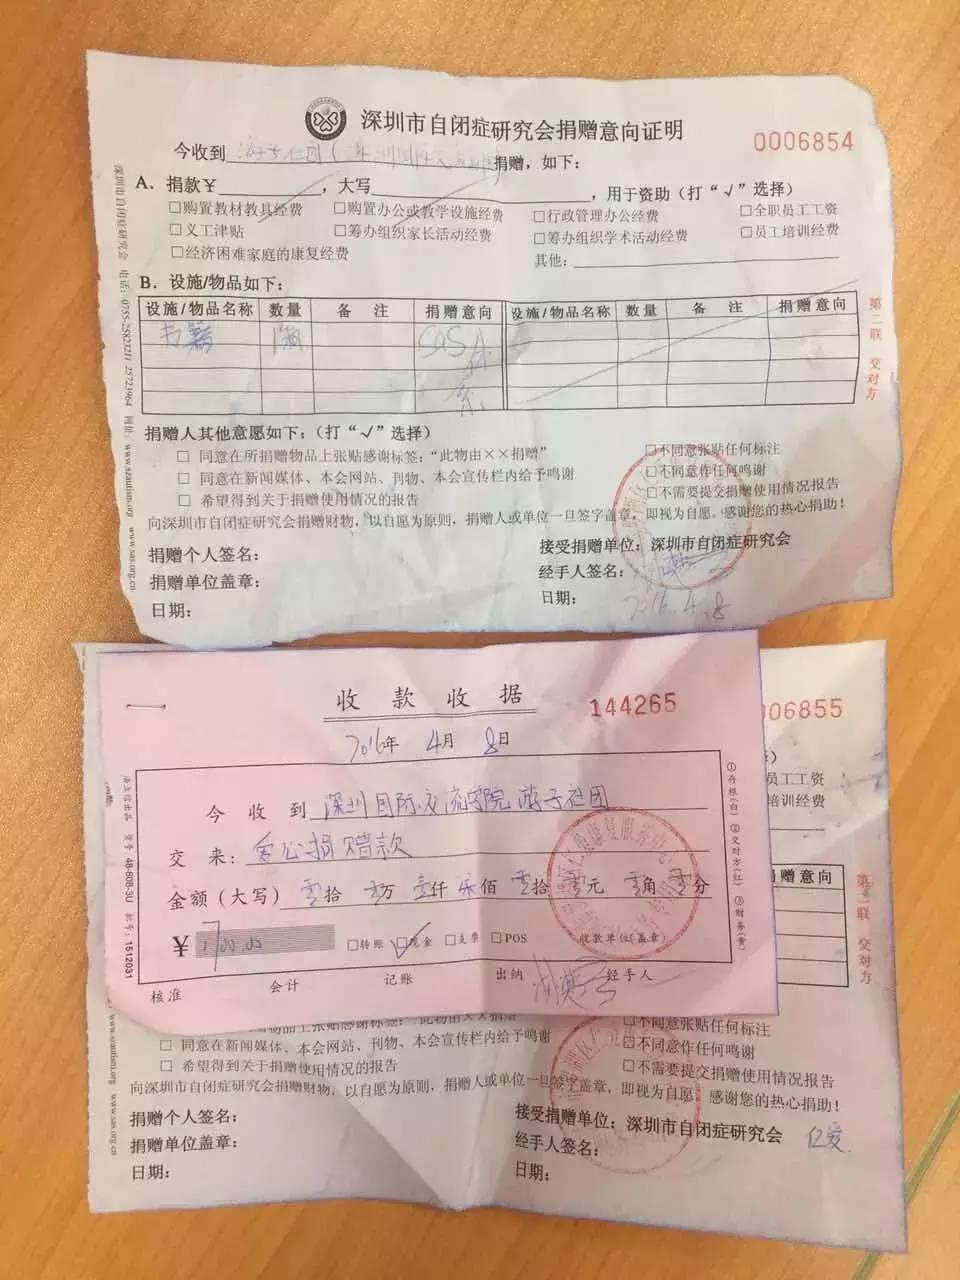 深圳市自闭症研究会捐赠意向证明
0006854
今收到 捐赠，如下：
A．捐款￥，大写，用于资助（打“√”选择）
□购置教材教具经费 □购置办公或教学设施经费 □行政管理办公经费 □全职员工工资
□义工津贴 □筹办组织家长活动经费 □筹办组织学术活动经费 □员工培训经费
□经济困难家庭的康复经费 其他：
B．设施/物品如下：
设施/物品名称 数量 备 注 捐赠意向 设施/物品名称 数量 备 注 捐赠意向
书籍
捐赠人其他意愿如下：（打“√”选择）
□ 同意在所捐赠物品上张贴感谢标签：“此物由××捐赠” □不同意张贴任何标注
□ 同意在新闻媒体、本会网站、刊物、本会宣传栏内给予鸣谢 □不同意作任何鸣谢
□ 希望得到关于捐赠使用情况的报告 □不需要提交捐赠使用情况报告
向深圳市自闭症研究会捐赠财物，以自愿为原则，捐赠人或单位一旦签字盖章，即视为自愿。感谢您的热心捐助！
捐赠个人签名： 接受捐赠单位：深圳市自闭症研究会
捐赠单位盖章： 经手人签名：
日期： 日期： 2016.4.8
深圳市自闭症研究会 电话：0755-25823211 25723964 网址：www.szautism.org www.sas.org.cn
第二联 交对方
收款收据
144265
2016年 4月 8日
今收到 深圳国际交流学院游子社团
交来： 捐赠款
金额（大写） 零拾 零万 壹仟 柒佰 零拾 零元 零角 零分
￥1700.00 □转账 ☑现金 □支票 □POS 收款单位(盖章)
核准 会计 记账 出纳 经手人
①存根(白) ②交对方(红) ③财务(黄)
48-808-3U
1512031
06855
员工工资
培训经费
捐赠意向
第二联 交对方
□不同意张贴任何标注
□ 同意在新闻媒体、本会网站、刊物、本会宣传栏内给予鸣谢 □不同意作任何鸣谢
□ 希望得到关于捐赠使用情况的报告 □不需要提交捐赠使用情况报告
向深圳市自闭症研究会捐赠财物，以自愿为原则，捐赠人或单位一旦签字盖章，即视为自愿。感谢您的热心捐助！
捐赠个人签名： 接受捐赠单位：深圳市自闭症研究会
捐赠单位盖章： 经手人签名：
日期： 日期：
www.szautism.org www.sas.org.cn